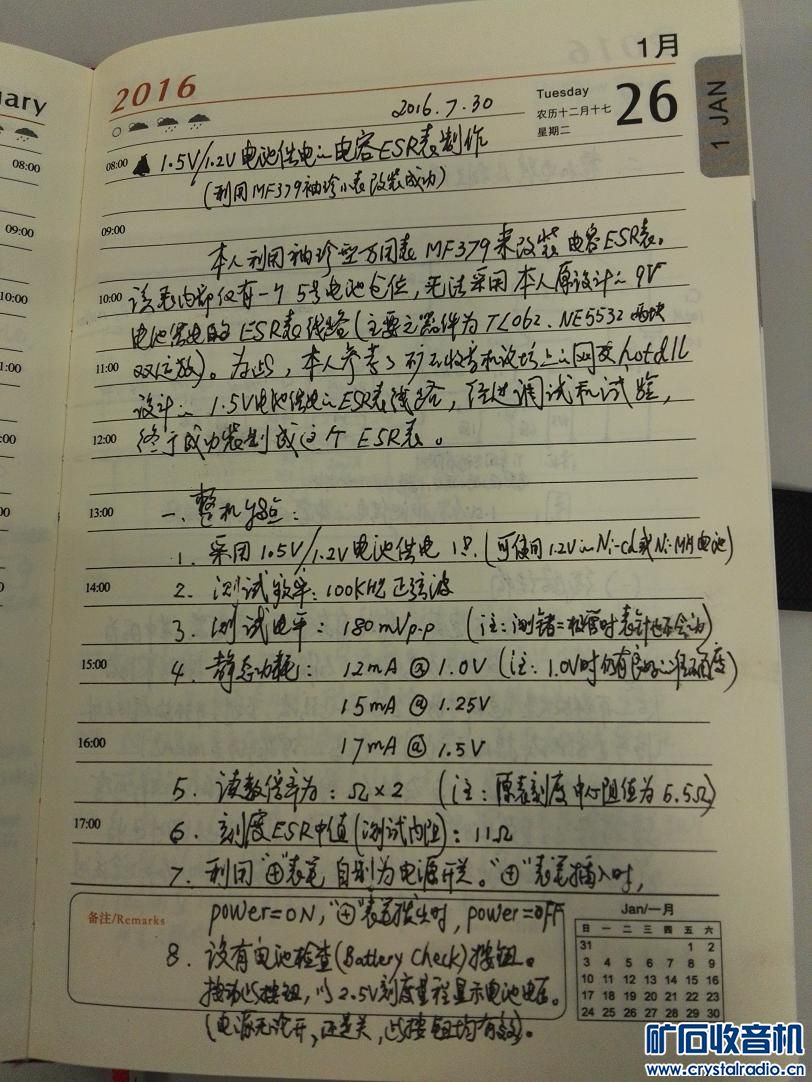 uary
2016
1月
2016.7.30
Tuesday
农历十二月十七
星期二
26
1 JAN
08:00 1.5V/1.2V电池供电的电容ESR表制作
(利用MF379袖珍小表改装成功)
09:00
本人利用袖珍型万用表MF379来改装电容ESR表。
10:00 该表内部仅有一个5号电池仓位,无法采用本人原设计的9V
电池供电的ESR表线路(主要元器件为TL062、NE5532两块
11:00 双运放)。为此,本人参考了矿石收音机论坛上的网友hotdll
设计的1.5V电池供电的ESR表线路,经过调试和试验,
12:00 终于成功装制成这个ESR表。
13:00 一、整机特点:
1. 采用1.5V/1.2V电池供电1只.(可使用1.2V的Ni-Cd或Ni-MH电池)
14:00 2. 测试频率:100KHz正弦波
3. 测试电平:180mVp-p (注:测锗二极管时表针也不会动)
15:00 4. 静态功耗: 12mA @ 1.0V (注:1.0V时仍有良好的准确度)
15mA @ 1.25V
16:00 17mA @ 1.5V
5. 读数倍率为:Ω×2 (注:原表刻度中心阻值为5.5Ω)
17:00 6. 刻度ESR中值(测试内阻):11Ω
7. 利用"⊕"表笔 自制为电源开关。"⊕"表笔插入时,
备注/Remarks power=ON,"⊕"表笔拔出时,power=OFF
8. 设有电池检查(Battery Check)按钮。
按动此按钮,以2.5V刻度量程显示电池电压。
(电源无论开,还是关,此按钮均有效)。
Jan/一月
日 一 二 三 四 五 六
31 1 2
3 4 5 6 7 8 9
10 11 12 13 14 15 16
17 18 19 20 21 22 23
24 25 26 27 28 29 30
08:00
09:00
10:00
1:00
2:00
3:00
:00
:00
:00
00
矿石收音机
www.crystalradio.cn